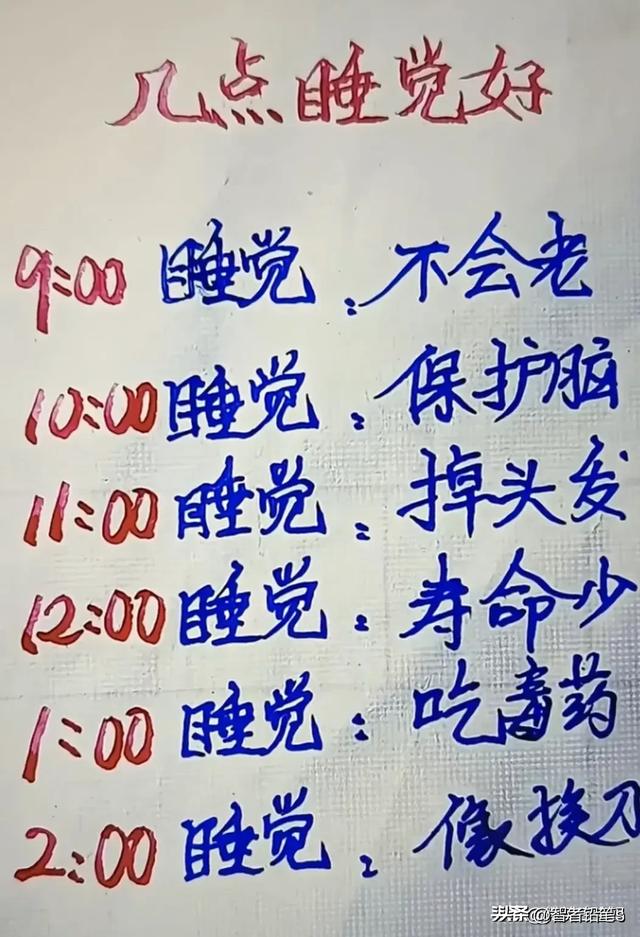 几点睡觉好
9:00 睡觉:不会老
10:00睡觉:保护脑
11:00睡觉:掉头发
12:00睡觉:寿命少
1:00睡觉:吃毒药
2:00睡觉:像挨刀
头条@智者铅笔B